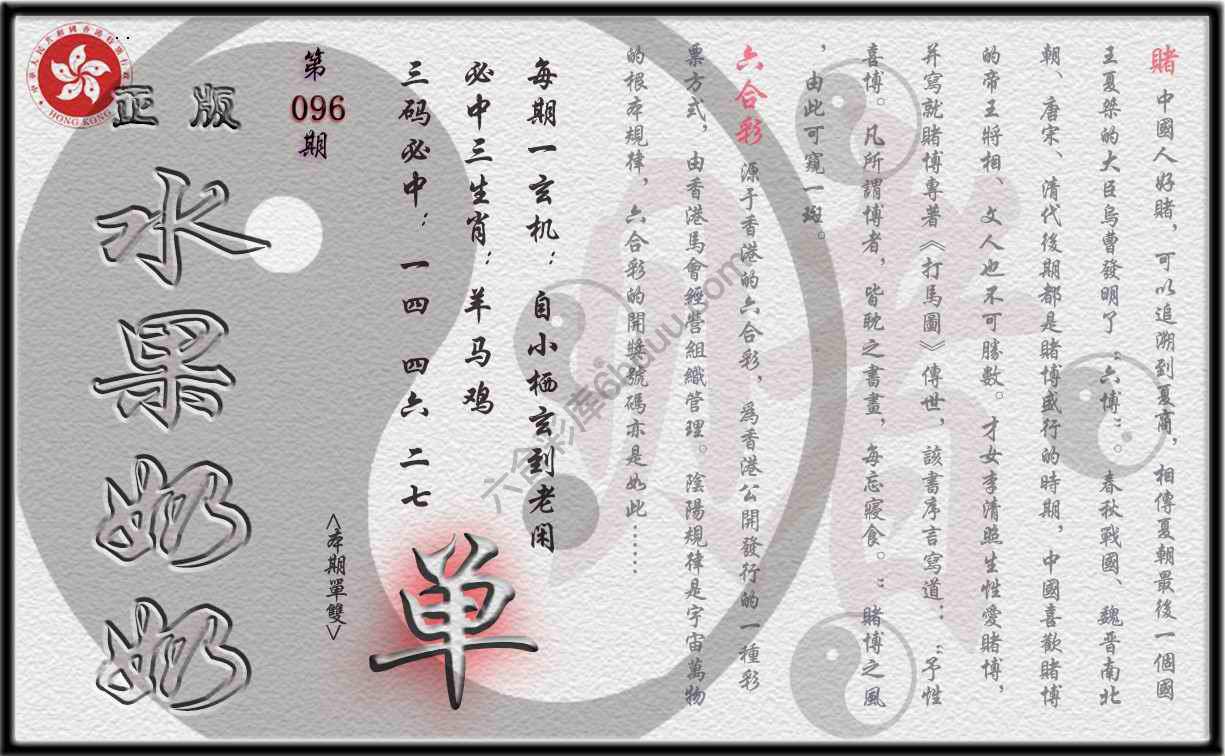 賭 中國人好賭，可以追溯到夏商，相傳夏朝最後一個國
王夏桀的大臣烏曹發明了“六博”。春秋戰國、魏晋南北
朝、唐宋、清代後期都是賭博盛行的時期，中國喜歡賭博
的帝王將相、文人也不可勝數。才女李清照生性愛賭博，
并寫就賭博專著《打馬圖》傳世，該書序言寫道：“予性
喜博。凡所謂博者，皆耽之書畫，每忘寢食。”賭博之風
，由此可窺一斑。
六合彩 源于香港的六合彩，爲香港公開發行的一種彩
票方式，由香港馬會經營組織管理。陰陽規律是宇宙萬物
的根本規律，六合彩的開獎號碼亦是如此……
每期一玄机：自小栖玄到老闲
必中三生肖：羊马鸡
三码必中：一四 四六 二七
单
<本期單雙>
第
096
期
正版
水果奶奶
中華人民共和國香港特別行政區
HONG KONG
六合彩库6hduu.com